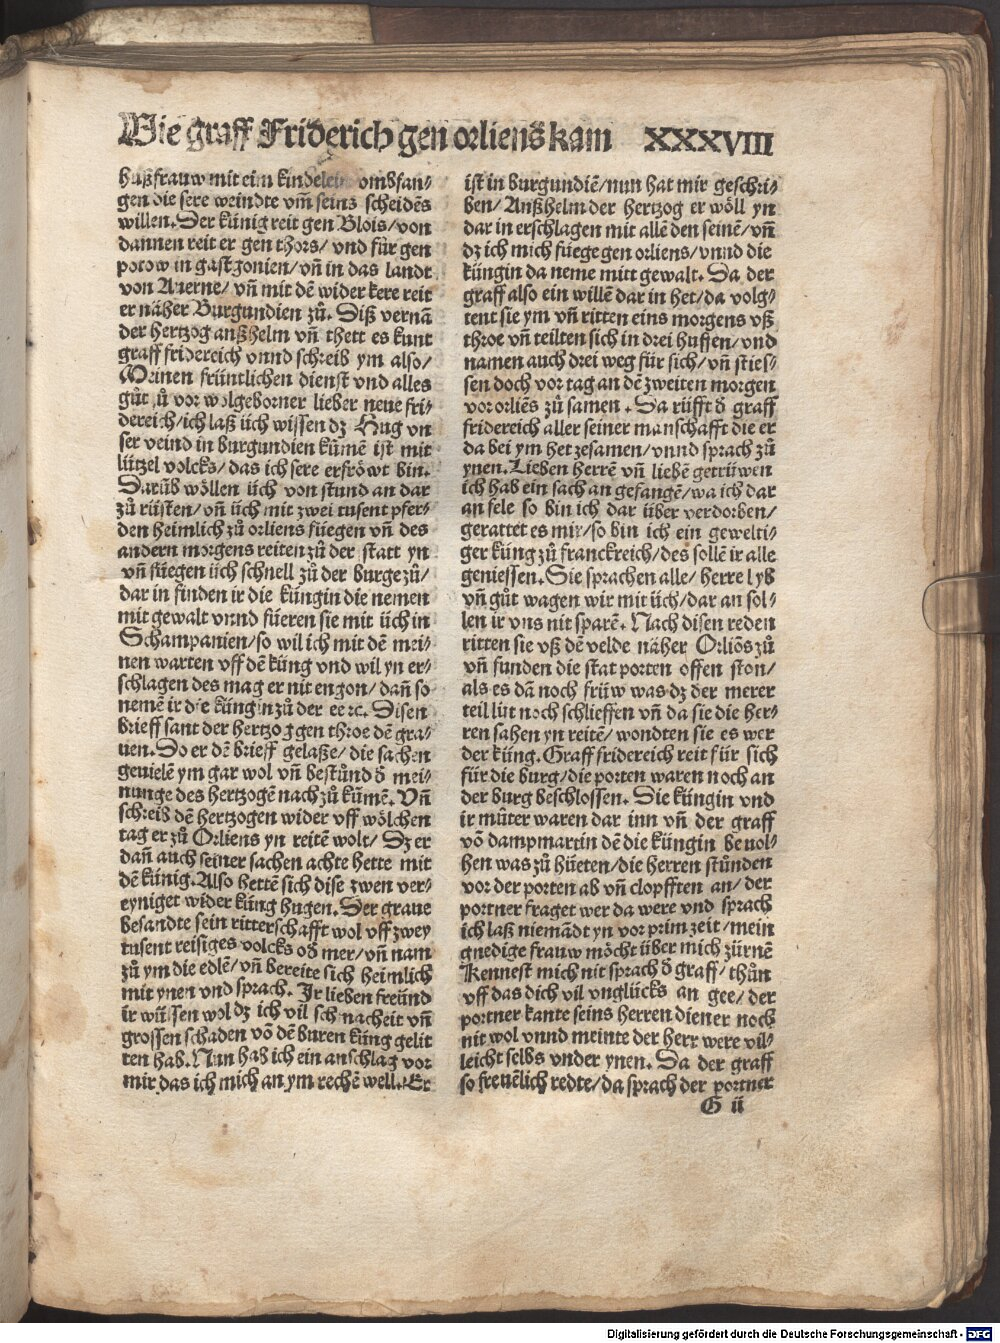 Wie graff Friderich gen orliens kam XXXVIII
haußfrauw mit eim kindelein ombfan⸗
gen die sere weindte vm̄ seins scheidēs
willen. Der künig reit gen Blois/von
dannen reit er gen thors/ vnd für gen
potow in gastgonien/ vn̄ in das landt
von Auerne/ vn̄ mit dē wider kere reit
er näher Burgundien zů. Diß vernā
der hertzog anßhelm vn̄ thett es kunt
graff fridereich vnnd schreib ym also/
Meinen früntlichen dienst vnd alles
gůt zů vor wolgeborner lieber neue fri⸗
dereich/ich laß üch wissen dz Hug vn
ser veind in burgundien kūmē ist mit
lützel volcks/ das ich sere erfröwt bin.
Darūb wöllen üch von stund an dar
zů rüsten/ vn̄ üch mit zwei tusent pfer⸗
den heimlich zů orliens füegen vn̄ des
andern morgens reiten zů der statt yn
vn̄ füegen üch schnell zů der burge zů/
dar in finden ir die küngin die nemen
mit gewalt vnnd füeren sie mit üch in
Schampanien/so wil ich mit dē mei⸗
nen warten vff dē küng vnd wil yn er⸗
schlagen des mag er nit engon/ dan̄ so
nemē ir die küngin zů der ee ꝛc. Disen
brieff sant der hertzog gen throe dē gra⸗
uen. Do er dē brieff gelaße/ die sachen
geuielē ym gar wol vn̄ bestůnd d̕ mei⸗
nunge des hertzogē nach zů kūmē. Vn̄
schreib dē hertzogen wider vff wölchen
tag er zů Orliens yn reitē wolt/ Dz er
dan̄ auch seiner sachen achte hette mit
dē künig. Also hettē sich dise zwen ver⸗
eyniget wider küng hugen. Der graue
besandte sein ritterschafft wol vff zwey
tusent reisiges volcks od̕ mer/ vn̄ nam
zů ym die edlē/ vn̄ bereite sich heimlich
mit ynen vnd sprach. Ir lieben freünd
ir wüssen wol dz ich vil schmacheit vn̄
grossen schaden vō dē buren küng gelit
ten hab. Nun hab ich ein anschlag vor
mir das ich mich an ym rechē well. Er
ist in burgundiē/nun hat mir geschri⸗
ben/ Anßhelm der hertzog er wöll yn
dar in erschlagen mit allē den seinē/ vn̄
dz ich mich füege gen orliens/vnnd die
küngin da neme mitt gewalt. Da der
graff also ein willē dar in het/da volg⸗
tent sie ym vn̄ ritten eins morgens vß
throe vn̄ teilten sich in drei huffen/ vnd
namen auch drei weg für sich/ vn̄ sties⸗
sen doch vor tag an dē zweiten morgen
vor orliēs zů samen. Da rüfft d̕ graff
fridereich aller seiner manschafft die er
da bei ym het zesamen/ vnnd sprach zů
ynen. Lieben herrē vn̄ liebē getrüwen
ich hab ein sach an gefangē/wa ich dar
an fele so bin ich dar über verdorben/
gerattet es mir/so bin ich ein gewelti⸗
ger küng zů franckreich/des sollē ir alle
geniessen. Sie sprachen alle/ herre lyb
vn̄ gůt wagen wir mit üch/dar an sol⸗
len ir vns nit sparē. Nach disen reden
ritten sie vß dē velde näher Orliēs zů
vn̄ funden die stat porten offen ston/
als es dā noch früw was dz der merer
teil lüt noch schlieffen vn̄ da sie die her⸗
ren sahen yn reitē/ wondten sie es wer
der küng. Graff fridereich reit für sich
für die burg/die porten waren noch an
der burg beschlossen. Die küngin vnd
ir můter waren dar inn vn̄ der graff
vō dampmartin dē die küngin beuol⸗
hen was zů hüeten/die herren stůnden
vor der porten ab vn̄ clopfften an/ der
portner fraget wer da were vnd sprach
ich laß niemādt yn vor prim zeit/mein
gnedige frauw möcht über mich zürnē
Kennest mich nit sprach d̕ graff/ thůn
vff das dich vil vnglücks an gee/ der
portner kante seins herren diener noch
nit wol vnnd meinte der herr were vil⸗
leicht selbs vnder ynen. Da der graff
so freuēlich redte/da sprach der portner
G ii
Digitalisierung gefördert durch die Deutsche Forschungsgemeinschaft - DFG